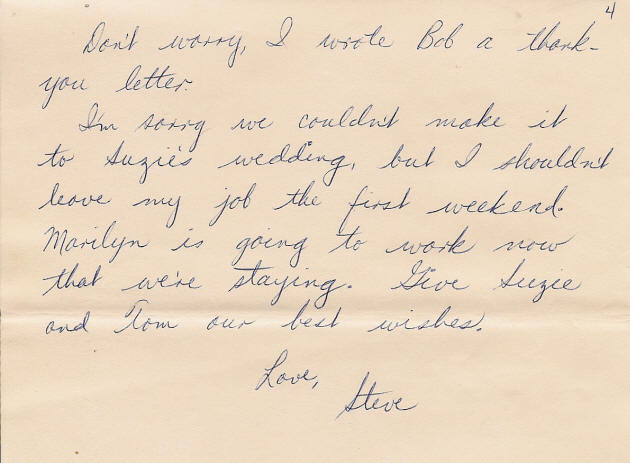 4
Don't worry, I wrote Bob a thank-
you letter.
I'm sorry we couldn't make it
to Suzie's wedding, but I shouldn't
leave my job the first weekend.
Marilyn is going to work now
that we're staying. Give Suzie
and Tom our best wishes.
Love,
Steve